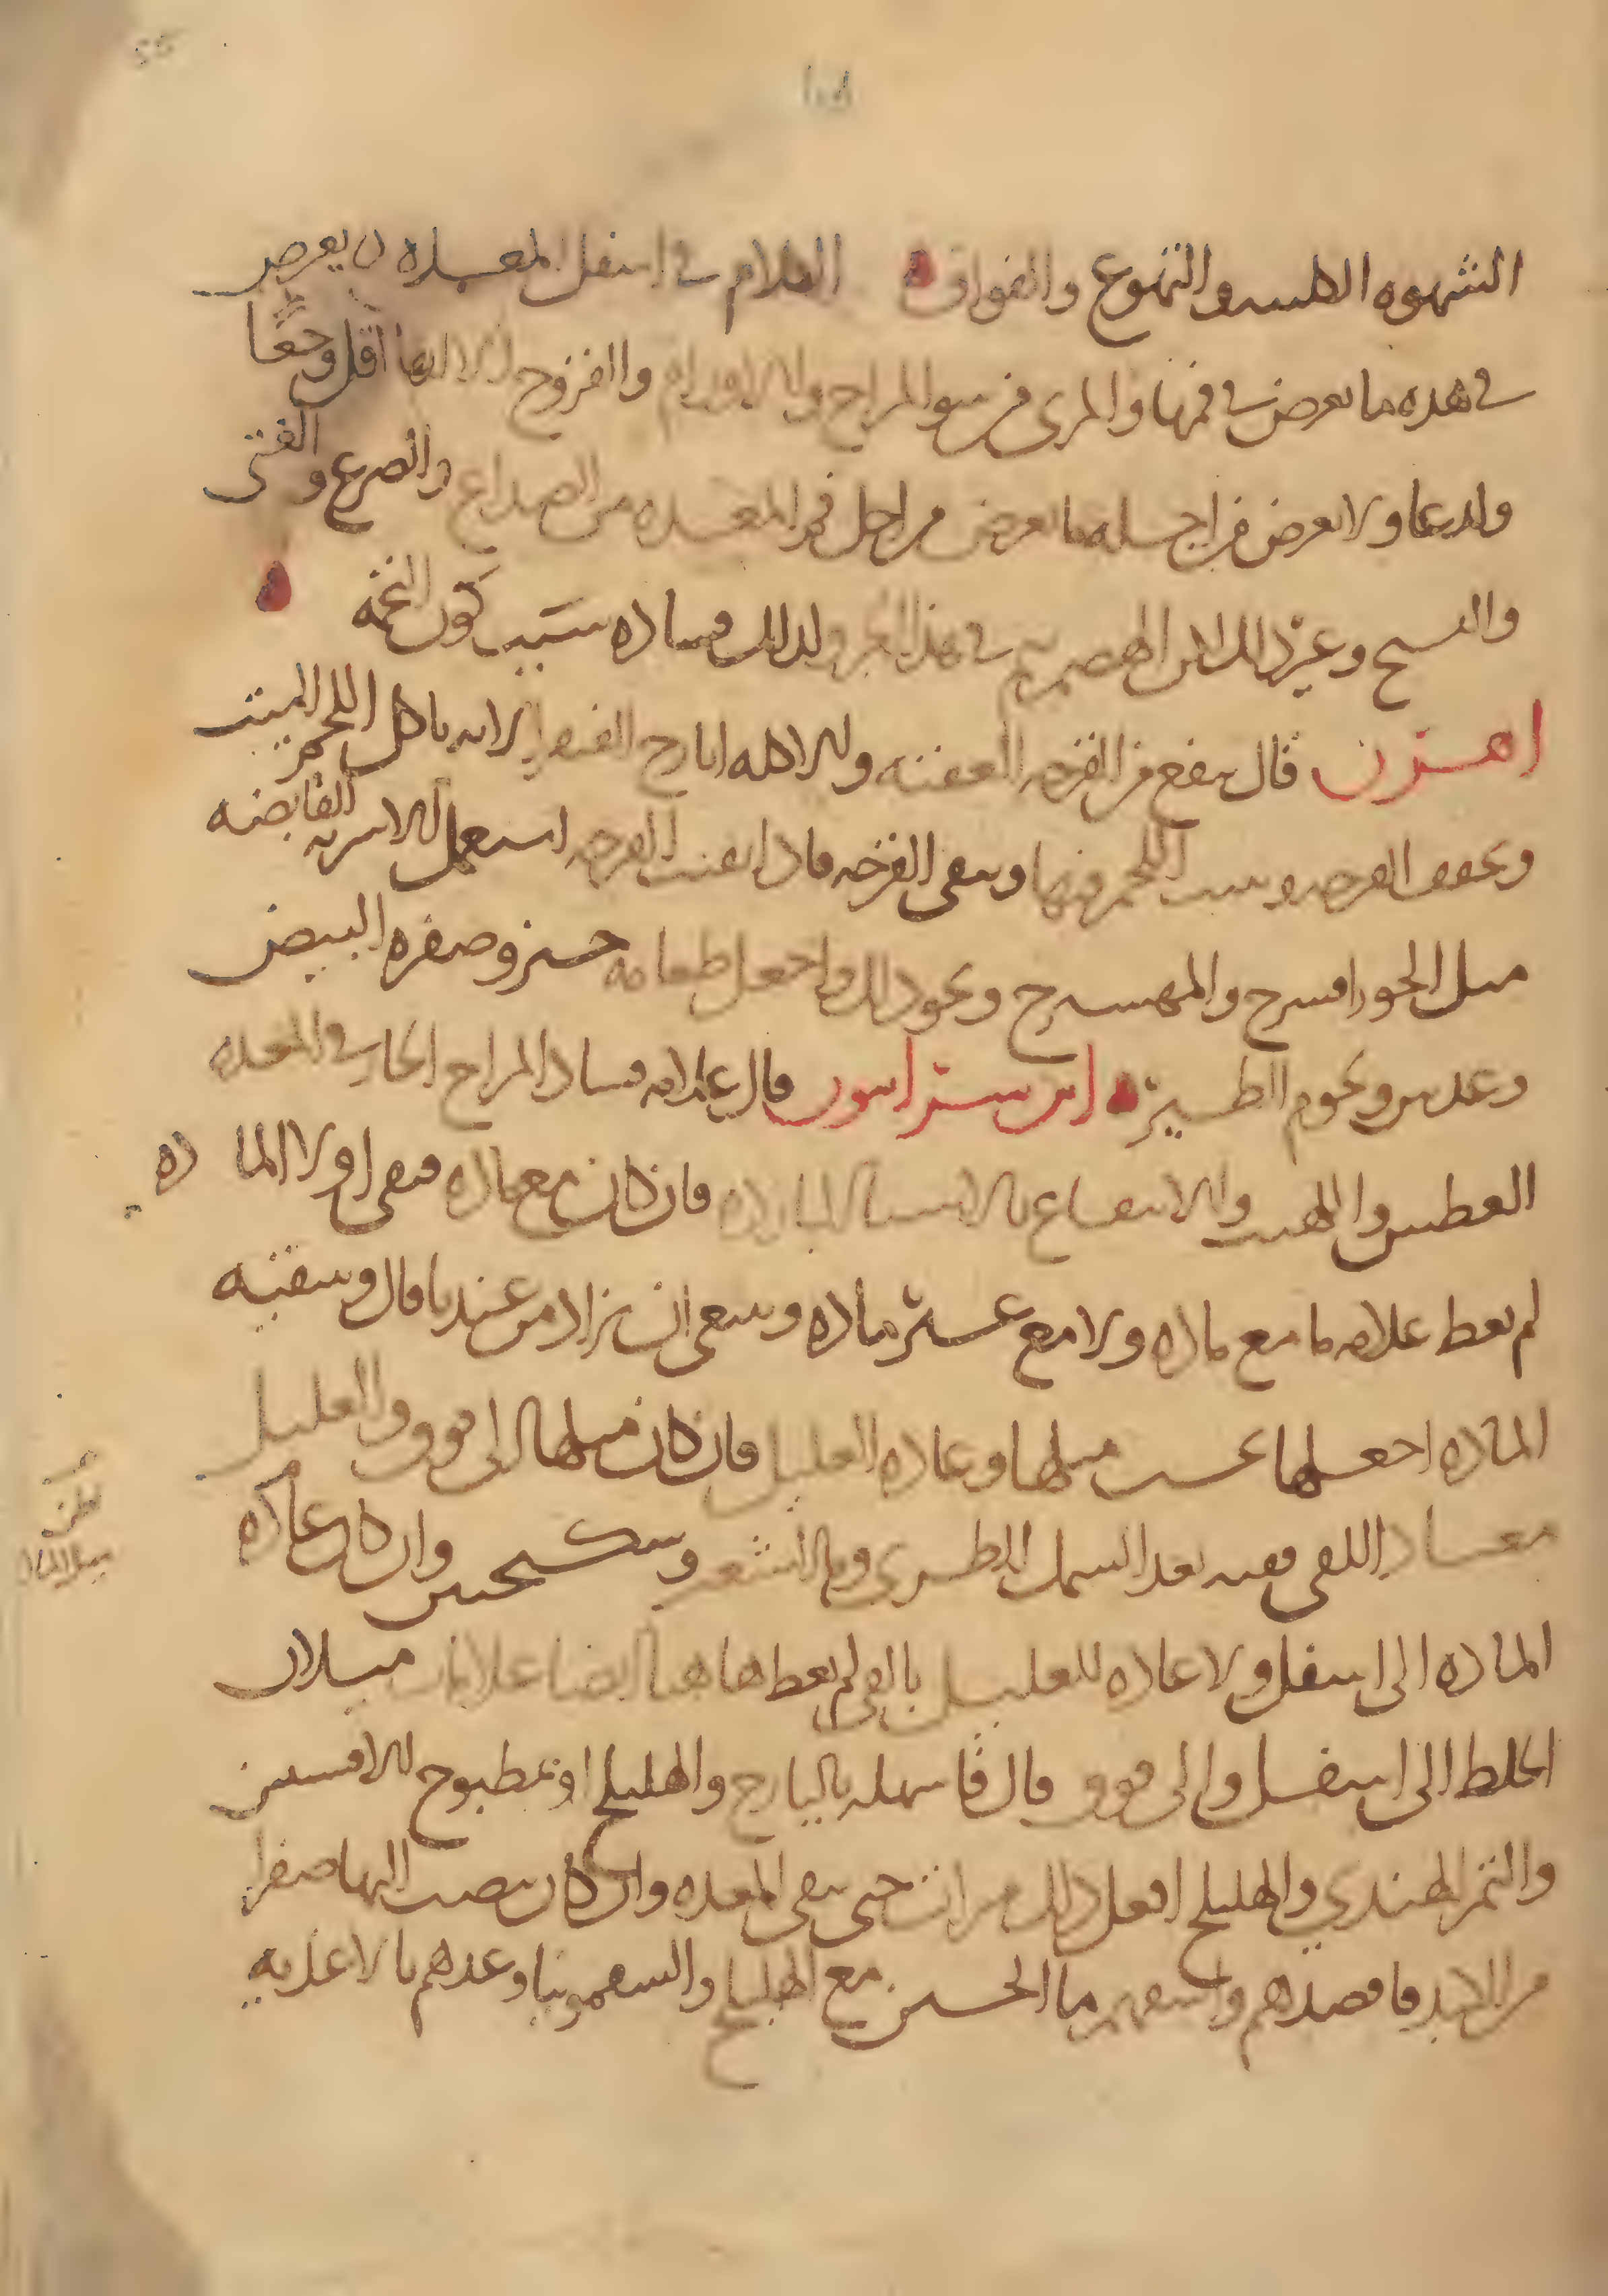 الشهوه الكلبيه والتهوع والفواق الكلام في اسفل المعده يعرض
في هذه ما يعرض في فمها والمري من سو المزاج والاورام والقروح الا انها اقل وجعا
ولدعا ولا يعرض من اجله ما يعرض من اجل فم المعده من الصداع والصرع والغشي
والتشنج وغير ذلك لان الهضم يتم في هذا الجزو لذلك فساده سبب كون التخمه
اهرن قال ينفع من القرحه العفنه والاكله ايارج الفيقرا لانه ياكل اللحم الميت
ويجفف القرحه وينبت اللحم فيها وينقي القرحه فاذا نقيت القرحه استعمل الاشربه القابضه
مثل الجوز وامسرج والمهسرج ونحو ذلك واجعل طعامه خبز وصفره البيض
وعدس ولحوم الطير ابن سرابيون قال علامه فساد المزاج الحار في المعده
العطش واللهيب والانتفاع بالاشيا البارده فان كان مع ماده فنقي اولا الماده
لم يعط علامه ما مع ماده ولا مع غير ماده وينبغي ان يزاد من عندنا قال وتنقيه
الماده اجعلها بحسب ميلها وعاده العليل فان كان ميلها الى فوق والعليل
معتاد القي فقيه بعد السمك الطري وما الشعير وسكنجبين وان كان عاده
الماده الى اسفل ولا عاده للعليل بالقي لم يعط هاهنا ايضا علامات ميلان
الخلط الى اسفل والى فوق قال فاسهله باليارج والهليلج او بمطبوخ الافسنتين
والتمر الهندي والهليلج افعل ذلك مرات حتى ينقي المعده وان كان ينصب اليها صفرا
من الكبد فافصدهم واسقهم ما الجبن مع الهليلج والسقمونيا وغذهم بالاغذيه